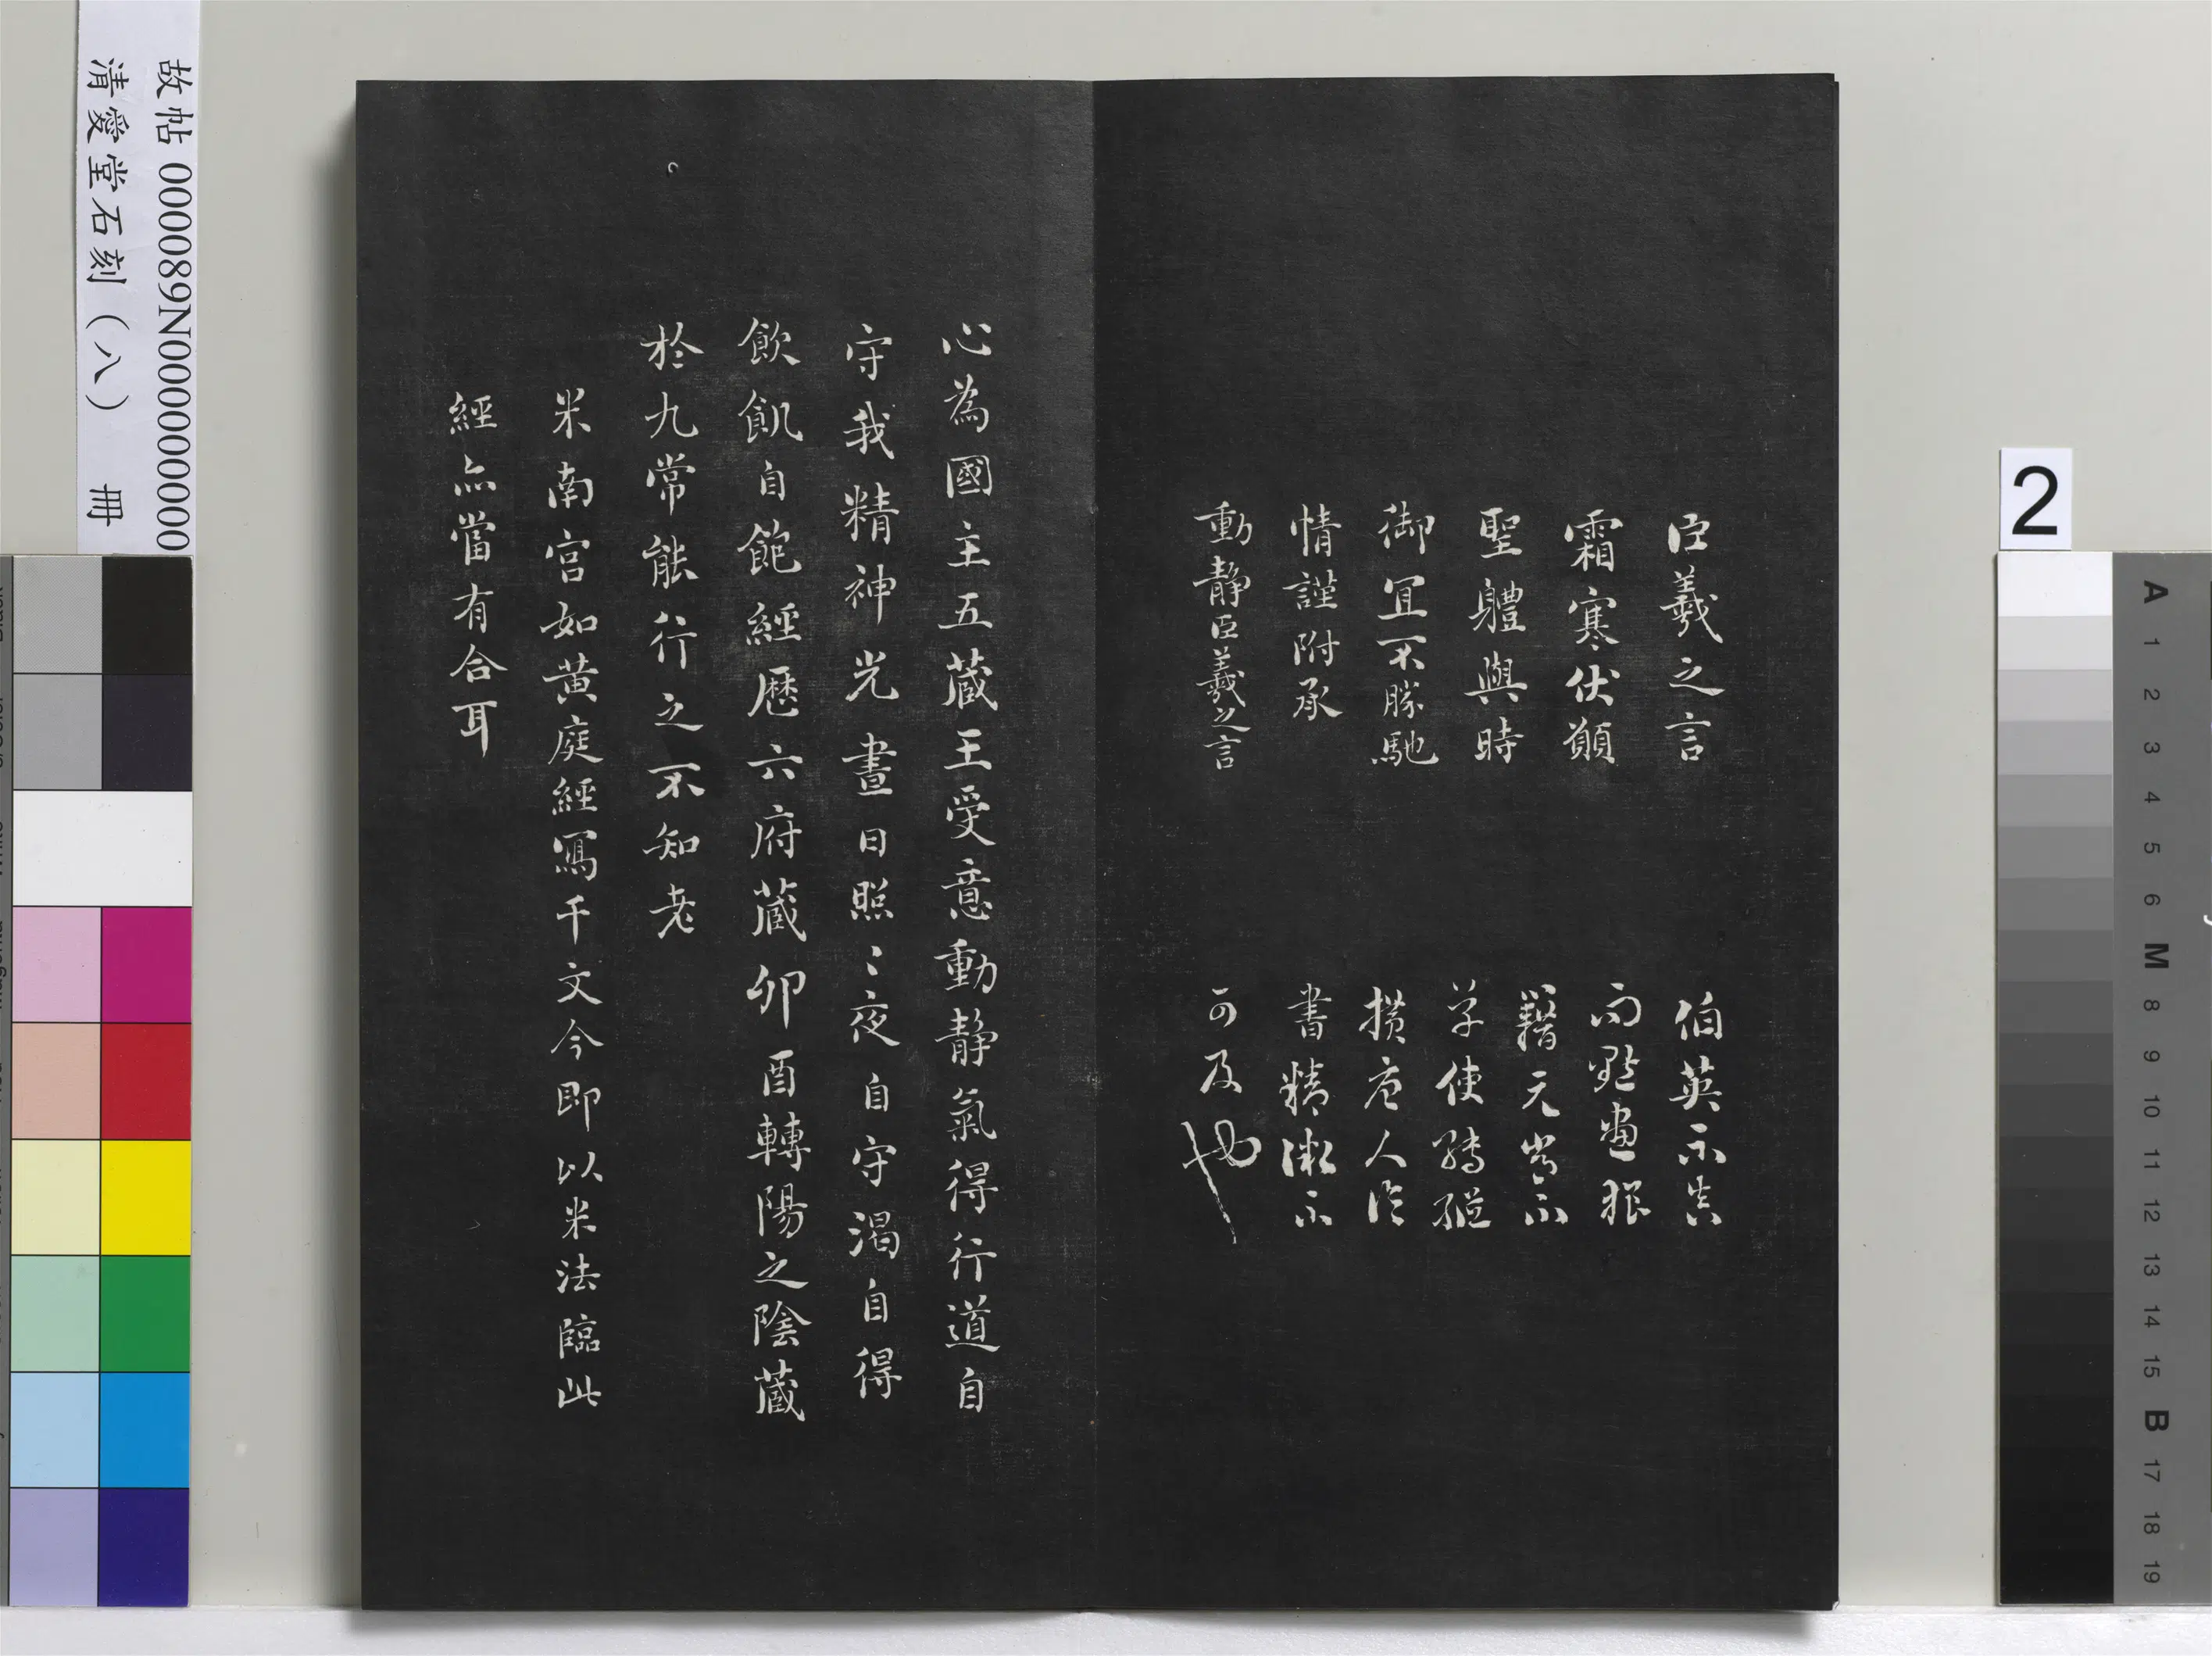 臣羲之言
霜寒伏願
聖體與時
御宜不勝馳
情謹附承
動靜臣羲之言
伯英不真
而點畫狼
籍元常不
草使轉縱
橫右人作
書精微不
可及也
心為國主五藏王受意動靜氣得行道自
守我精神光晝日照〻夜自守渴自得
飲飢自飽經歷六府藏卯酉轉陽之陰藏
於九常能行之不知老
米南宮如黃庭經寫千文今即以米法臨此
經亦當有合耳
故帖 000089N000000000
清愛堂石刻(八) 冊
2
A
1
2
3
4
5
6
M
8
9
10
11
12
13
14
15
B
17
18
19